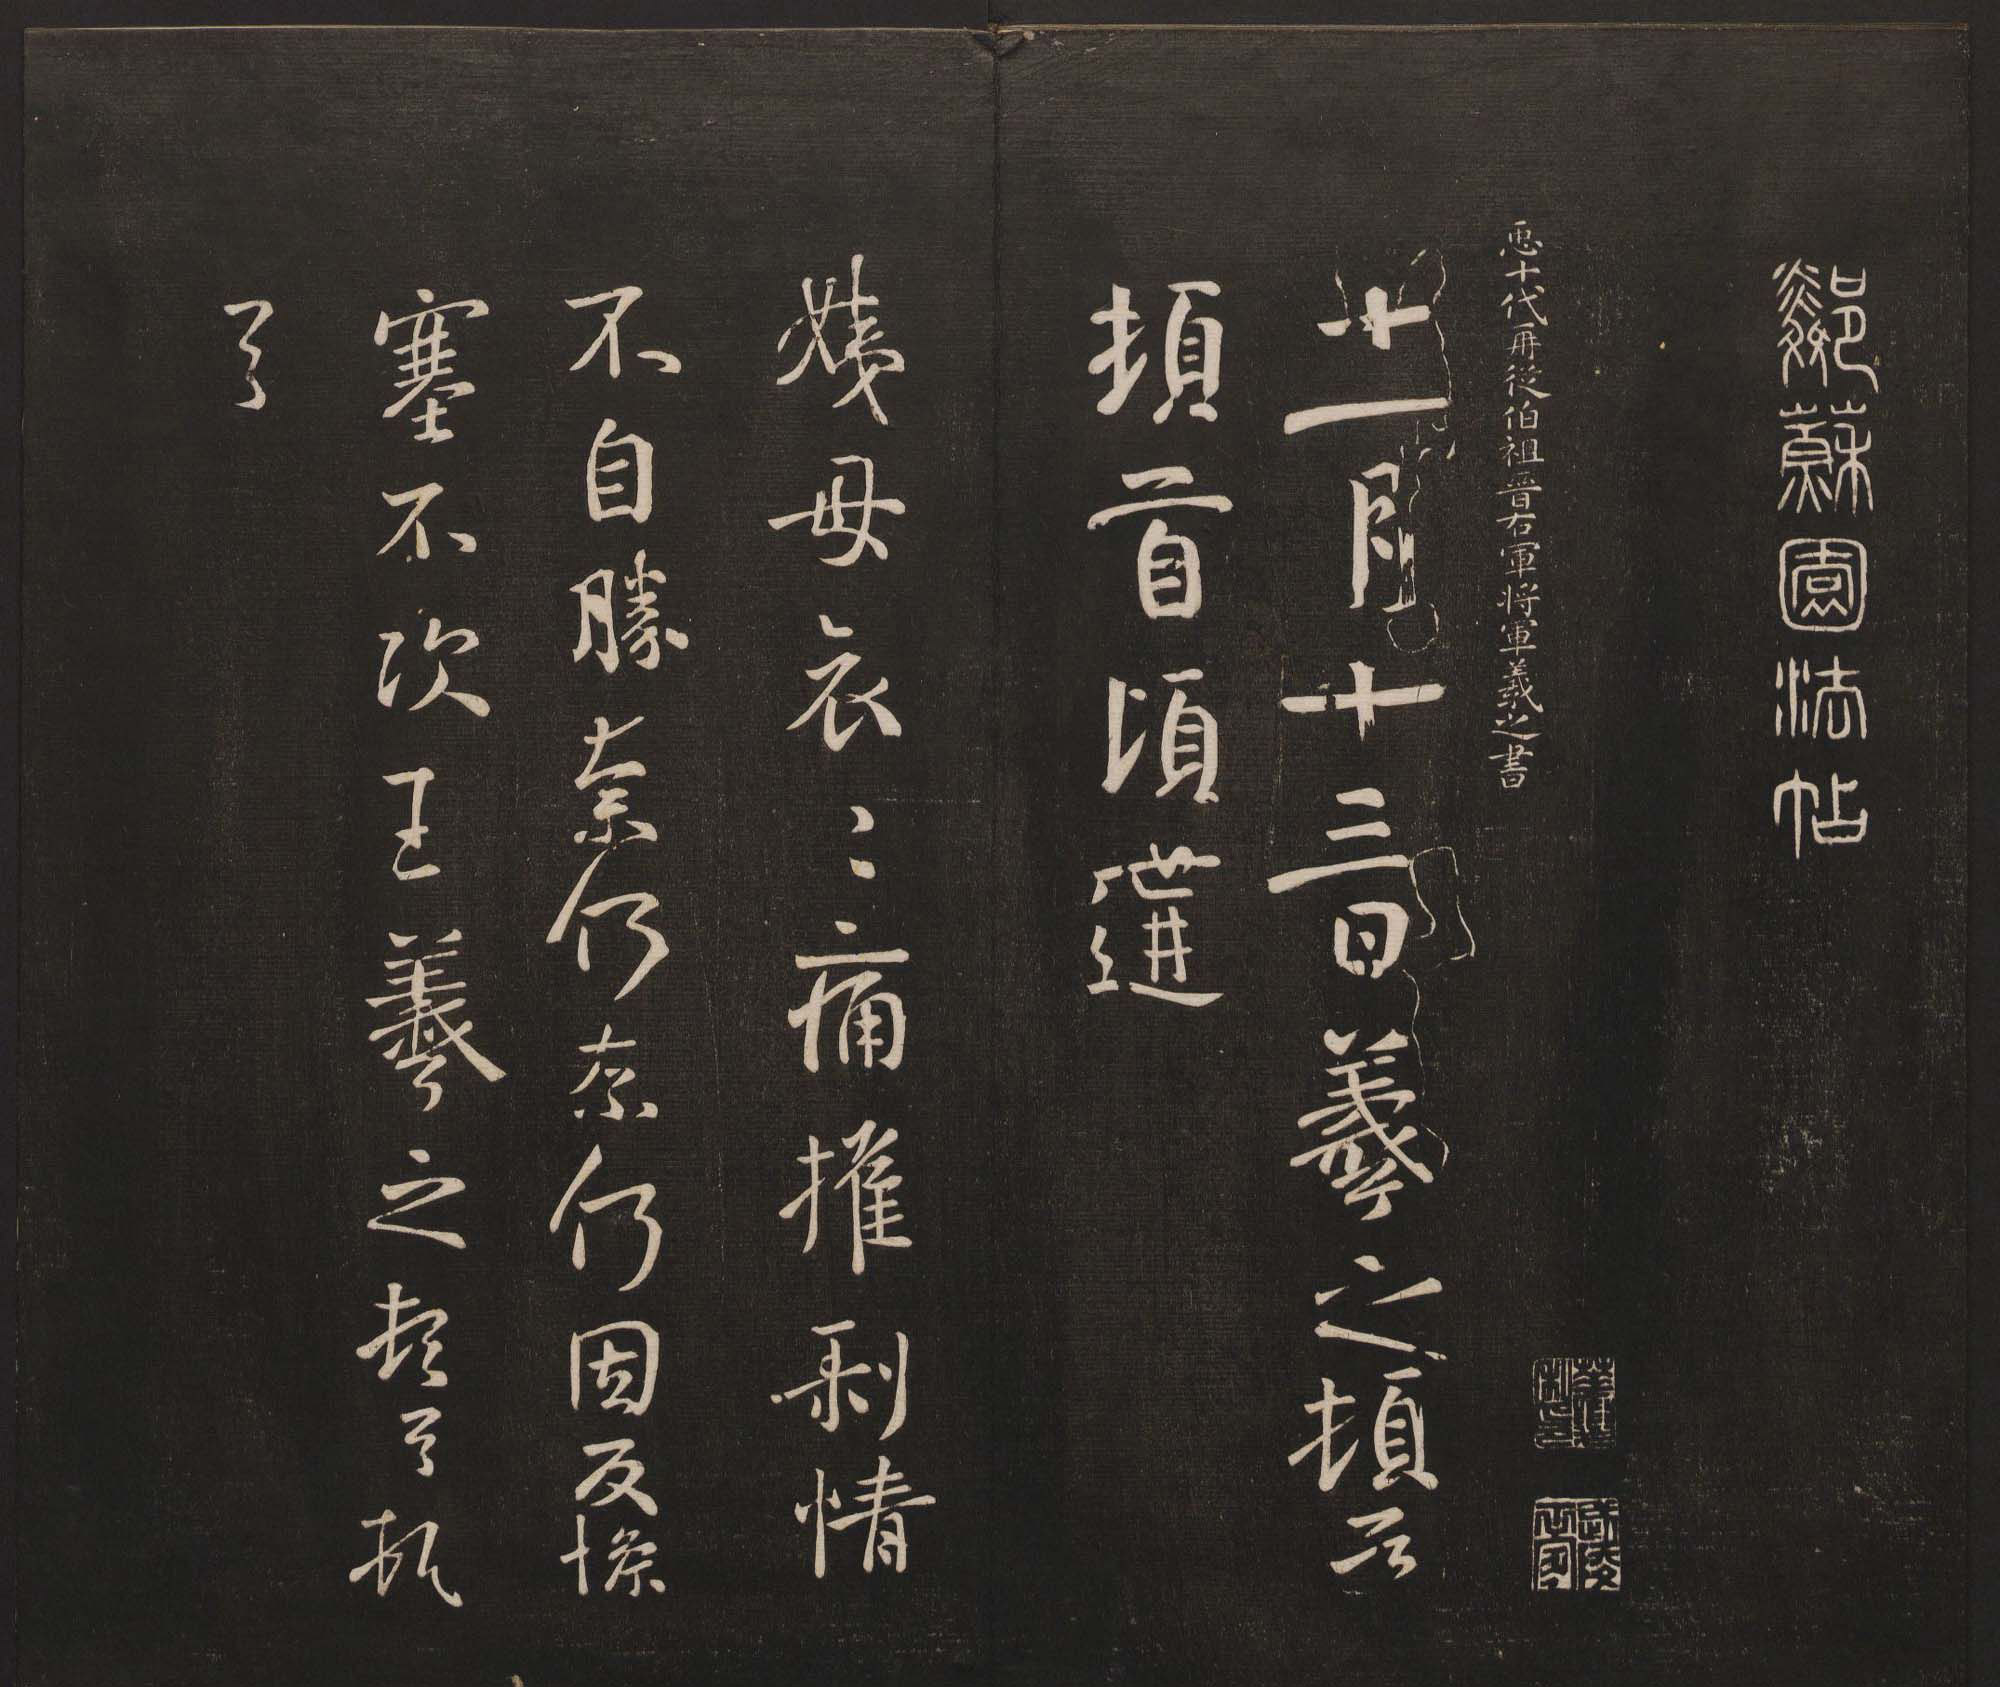 鄰蘇園法帖
𢘑十代再從伯祖晉右軍將軍羲之書
十一月十三日羲之頓首
頓首頃遘
姨母哀〻痛摧剝情
不自勝奈何奈何因反慘
塞不次王羲之頓首頓
首